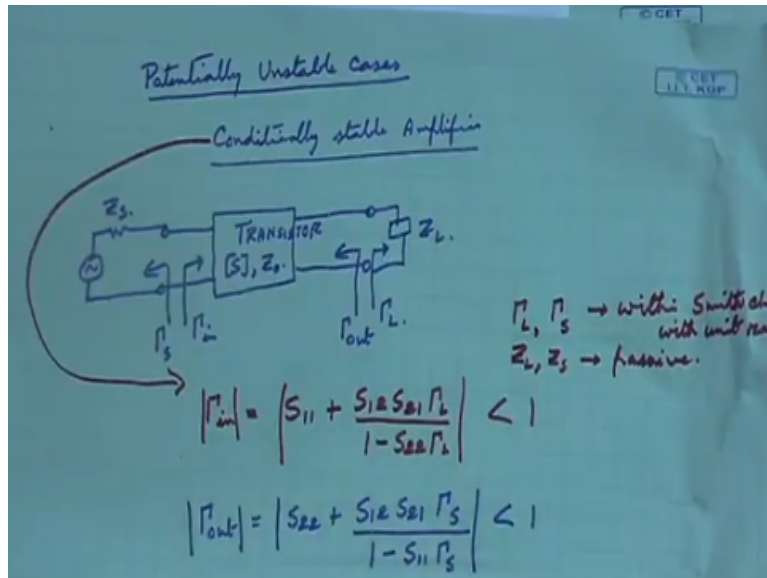 © CET
© CET
I.I.T. KGP
Potentially Unstable Cases
Conditionally stable Amplifier
Zs.
TRANSISTOR
[S], Z₀.
Z_L.
Γ_S Γ_in Γ_out Γ_L.
Γ_L, Γ_S → within Smith
with unit
Z_L, Z_S → passive.
|Γ_in| = |S₁₁ + S₁₂ S₂₁ Γ_L / 1 - S₂₂ Γ_L| < 1
|Γ_out| = |S₂₂ + S₁₂ S₂₁ Γ_S / 1 - S₁₁ Γ_S| < 1